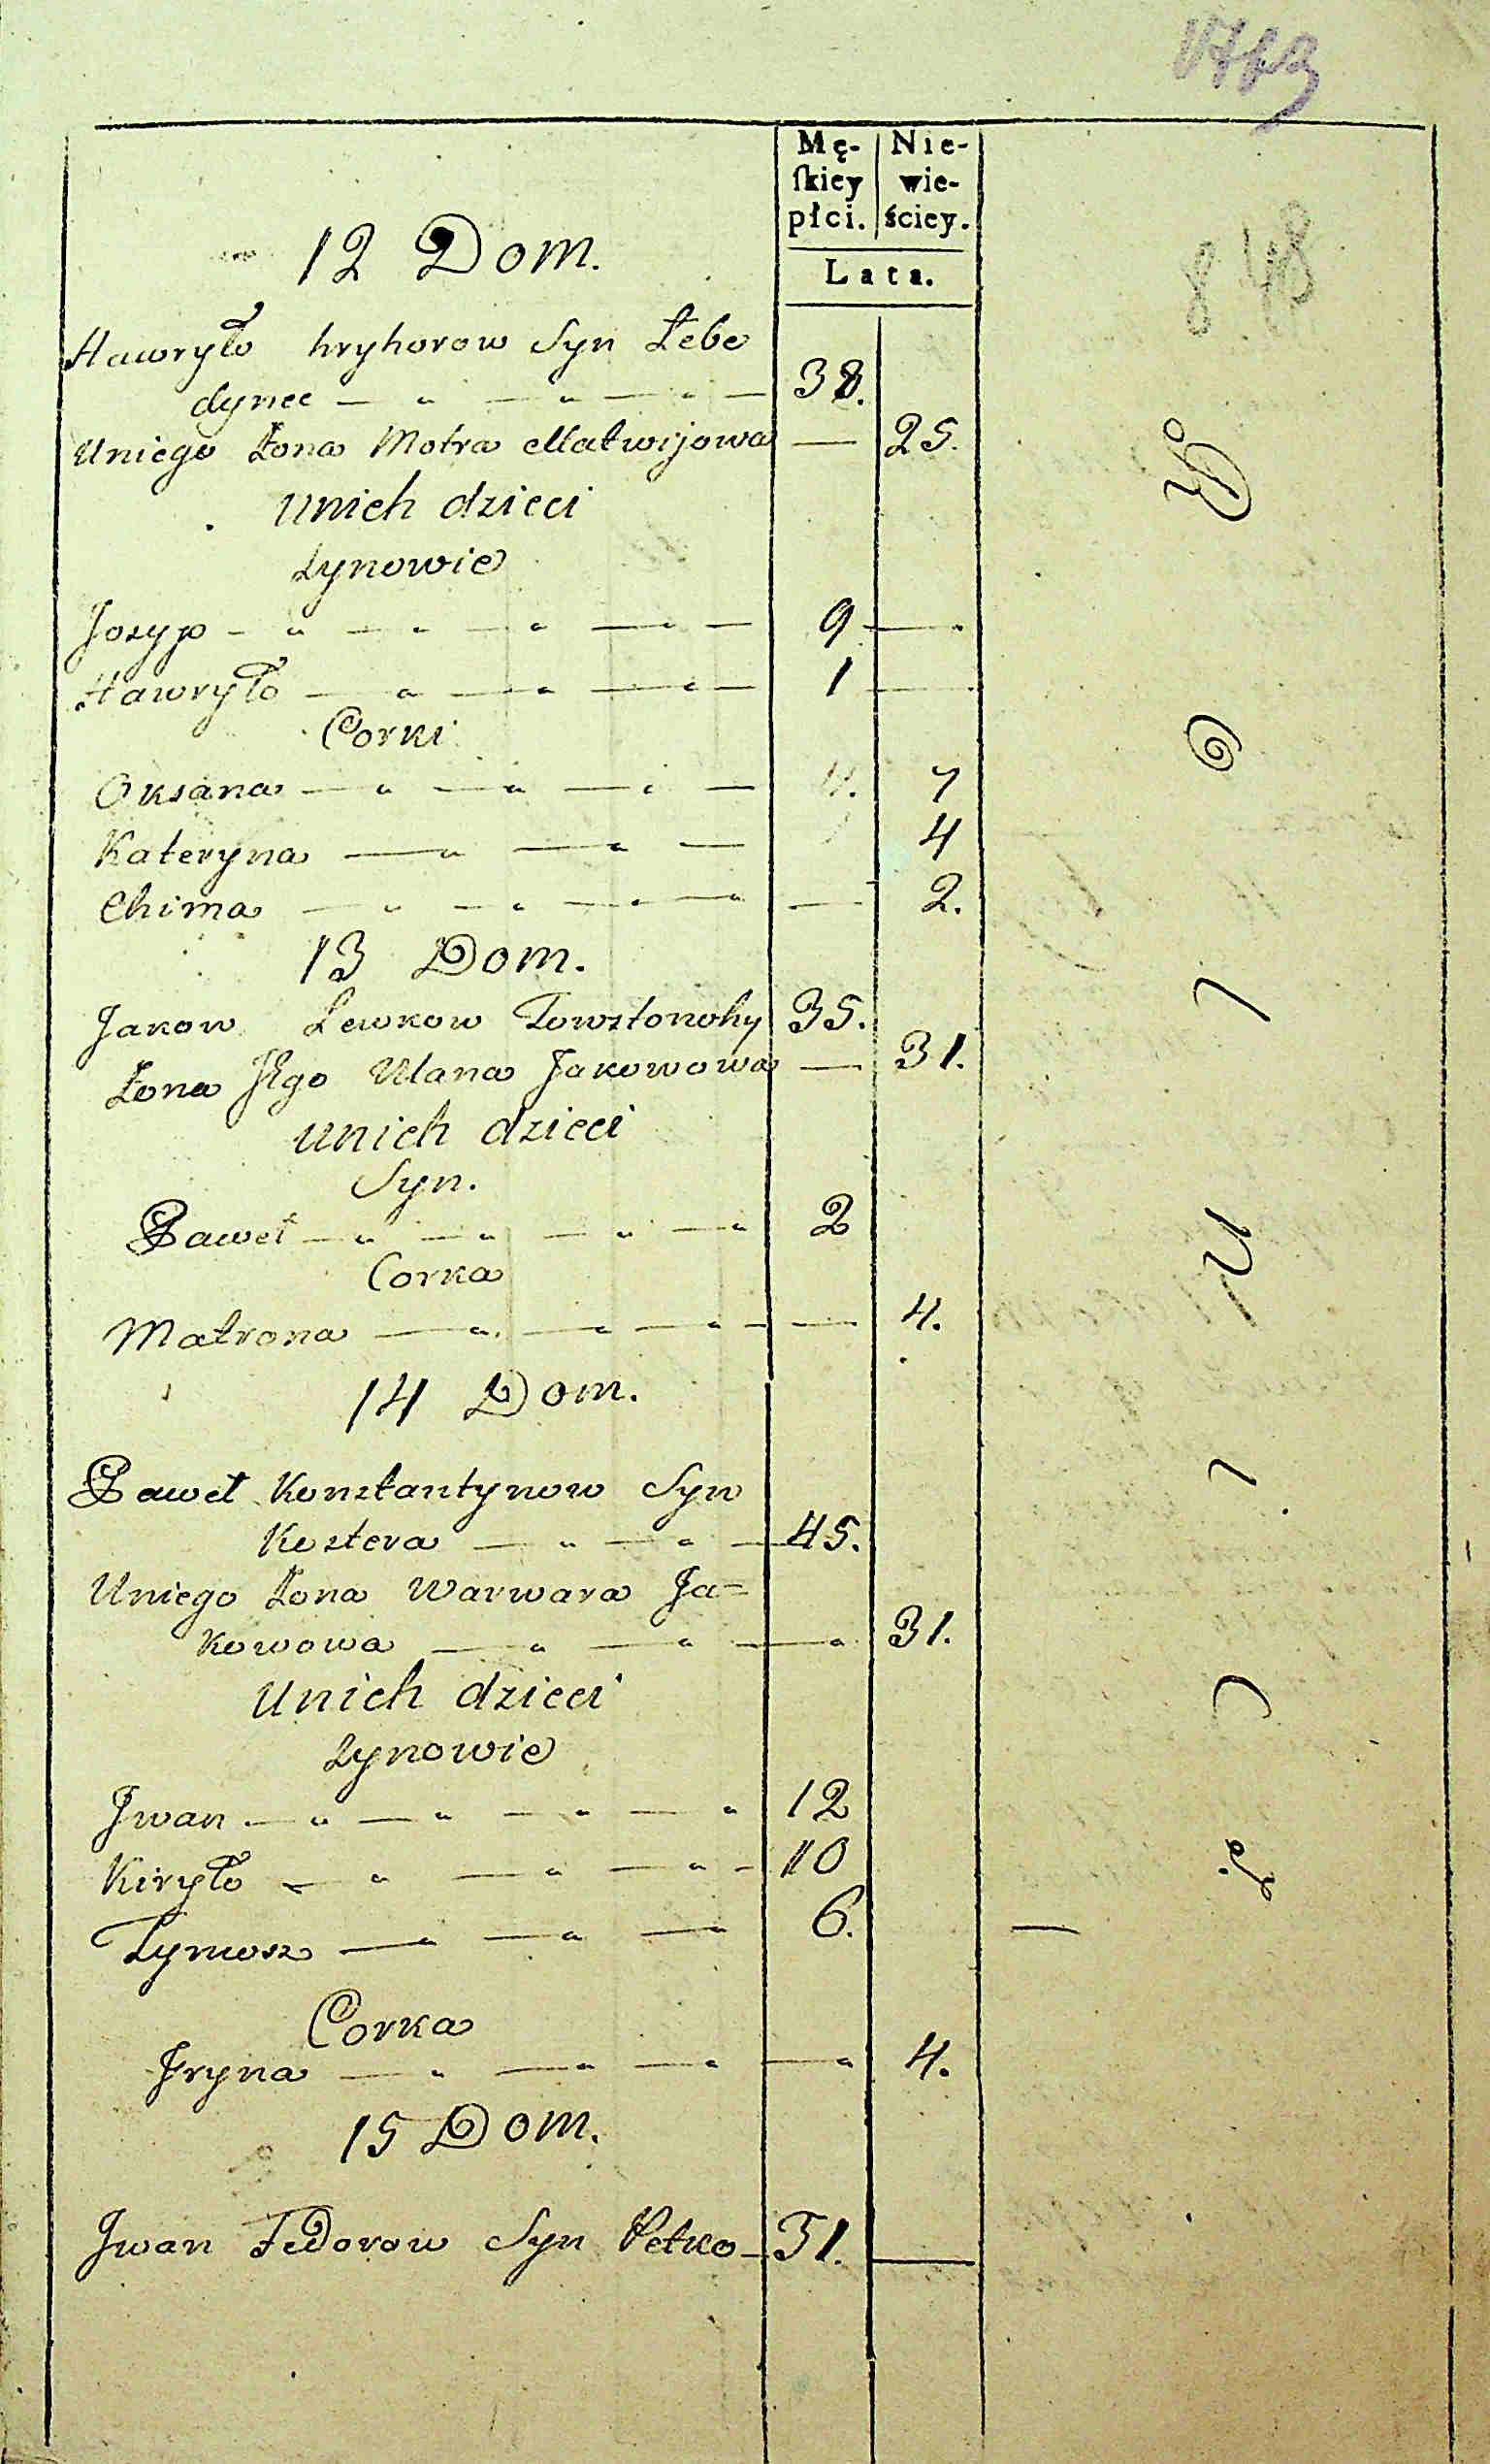 Mę- Nie-
ſkiey wie-
płci. ściey.
Lata.
848
12 Dom.
Hawryło hryhorow Syn Łebe
dynec 38.
Uniego Żona Motra Matwijowa — 25.
Unich dzieci
Synowie
Josyp 9 —
Hawryło 1 —
Corki
Oksana 7
Kateryna 4
Chima — 2.
13 Dom.
Jakow Lewkow Towstonohy 35.
Żona Jego Ulana Jakowowa — 31.
Unich dzieci
Syn.
Paweł 2
Corka
Matrona — 4.
14 Dom.
Paweł Konstantynow Syn
Kostera 45.
Uniego Żona Warwara Ja=
kowowa 31.
Unich dzieci
Synowie
Jwan 12
Kiryło 10
Tymosz 6.
Corka
Jryna 4.
15 Dom.
Jwan Fedorow Syn Petko 51. —